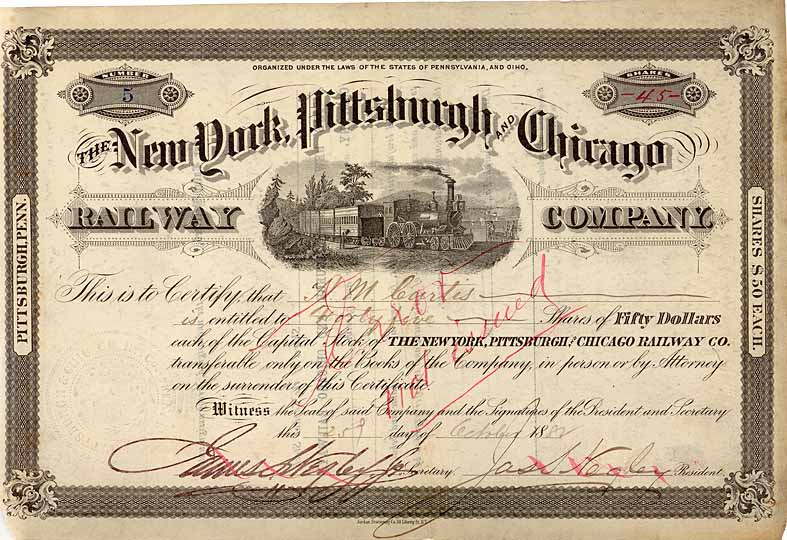 ORGANIZED UNDER THE LAWS OF THE STATES OF PENNSYLVANIA, AND OIHO.
NUMBER
5
SHARES
-45-
THE New York, Pittsburgh AND Chicago
RAILWAY COMPANY.
PITTSBURGH, PENN.
SHARES $50 EACH.
This is to Certify, that N M Curtis
is entitled to Forty five Shares of Fifty Dollars
each, of the Capital Stock of THE NEW YORK, PITTSBURGH, & CHICAGO RAILWAY CO.
transferable only on the Books of the Company, in person or by Attorney
on the surrender of this Certificate.
not issued
Witness the Seal of said Company and the Signatures of the President and Secretary
this day of October 188
James S Negley Jr Secretary. Jas S Negley President.